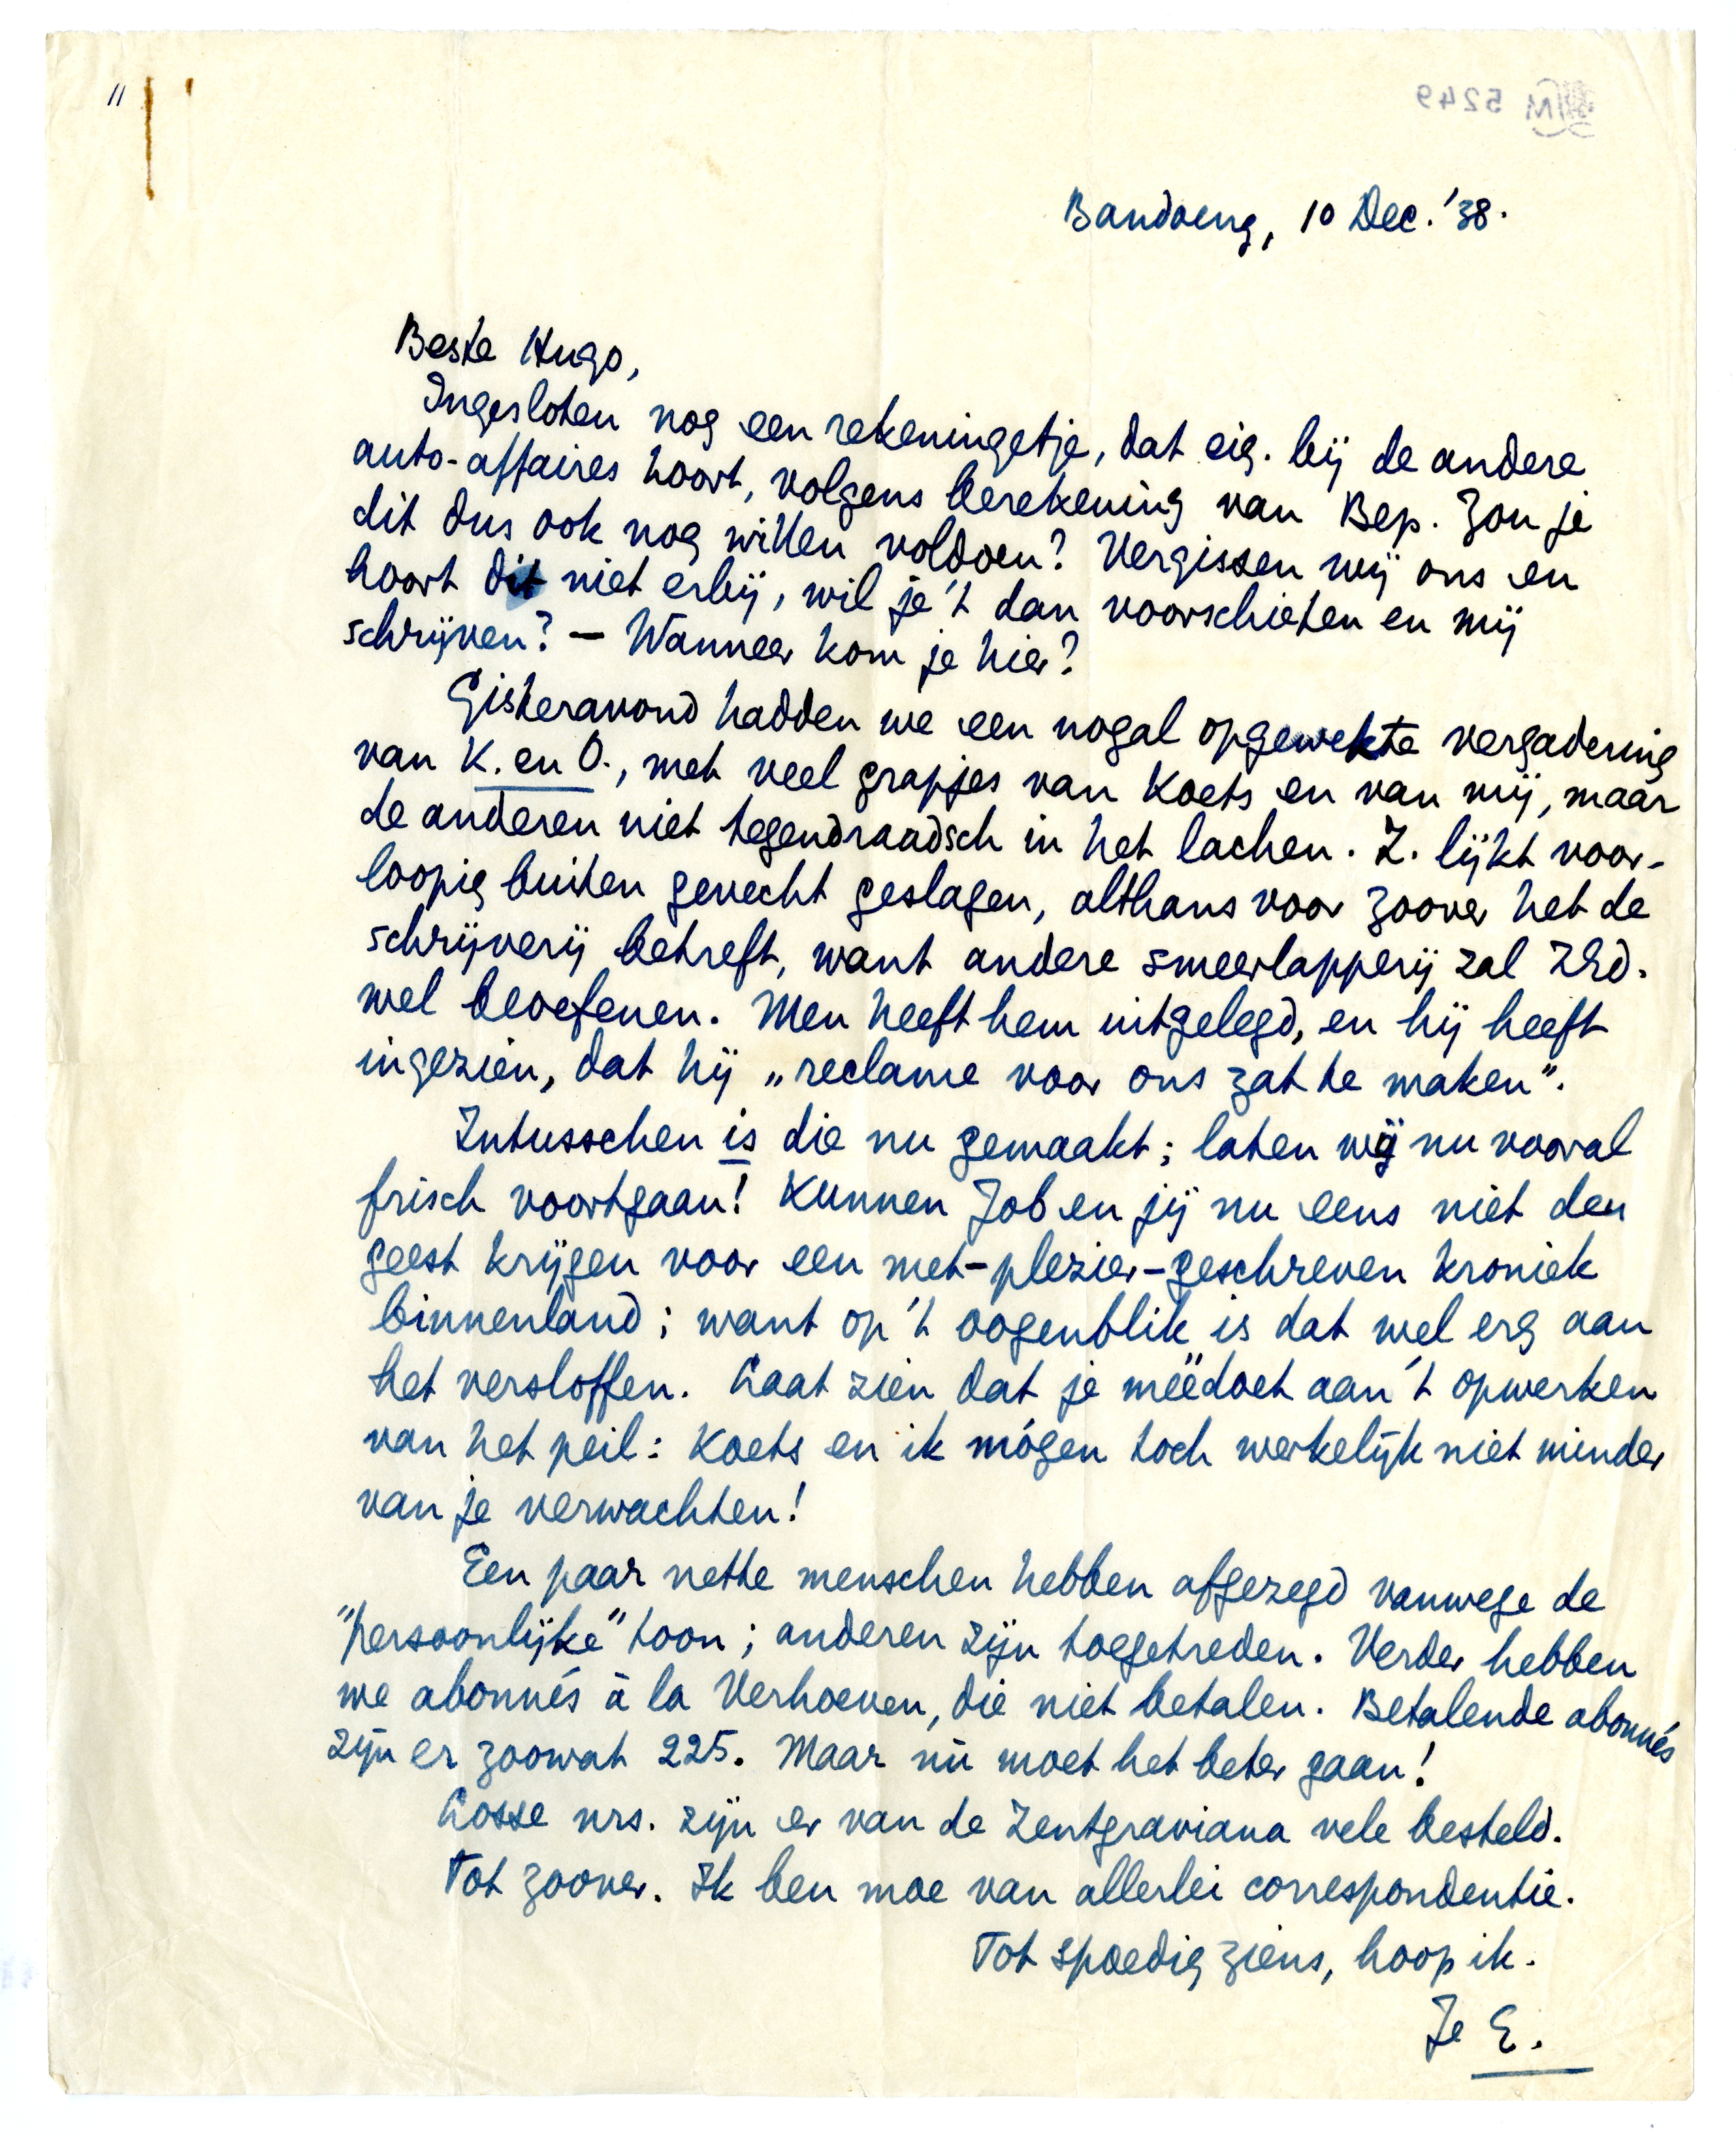 "
M 5249
Bandoeng, 10 Dec. '38.
Beste Hugo,
Ingesloten nog een rekeningetje, dat eig. bij de andere
auto-affaires hoort, volgens berekening van Bep. Zou je
dit dus ook nog willen voldoen? Vergissen wij ons en
hoort dit niet erbij, wil je 't dan voorschieten en mij
schrijven? — Wanneer kom je hier?
Gisteravond hadden we een nogal opgewekte vergadering
van K. en O., met veel grapjes van Koets en van mij, maar
de anderen niet tegendraadsch in het lachen. Z. lijkt voor-
loopig buiten gevecht geslagen, althans voor zoover het de
schrijverij betreft, want andere smeerlapperij zal ZEd.
wel beoefenen. Men heeft hem uitgelegd, en hij heeft
ingezien, dat hij „reclame voor ons zat te maken".
Intusschen is die nu gemaakt; laten wij nu vooral
frisch voortgaan! Kunnen Job en jij nu eens niet den
geest krijgen voor een met-plezier-geschreven kroniek
binnenland; want op 't oogenblik is dat wel erg aan
het versloffen. Laat zien dat je meëdoet aan 't opwerken
van het peil: Koets en ik mógen toch werkelijk niet minder
van je verwachten!
Een paar nette menschen hebben afgezegd vanwege de
"persoonlijke" toon; anderen zijn toegetreden. Verder hebben
we abonnés à la Verhoeven, die niet betalen. Betalende abonnés
zijn er zoowat 225. Maar nù moet het beter gaan!
Losse nrs. zijn er van de Zentgraviana vele besteld.
Tot zoover. Ik ben moe van allerlei correspondentie.
Tot spoedig ziens, hoop ik.
Je E.